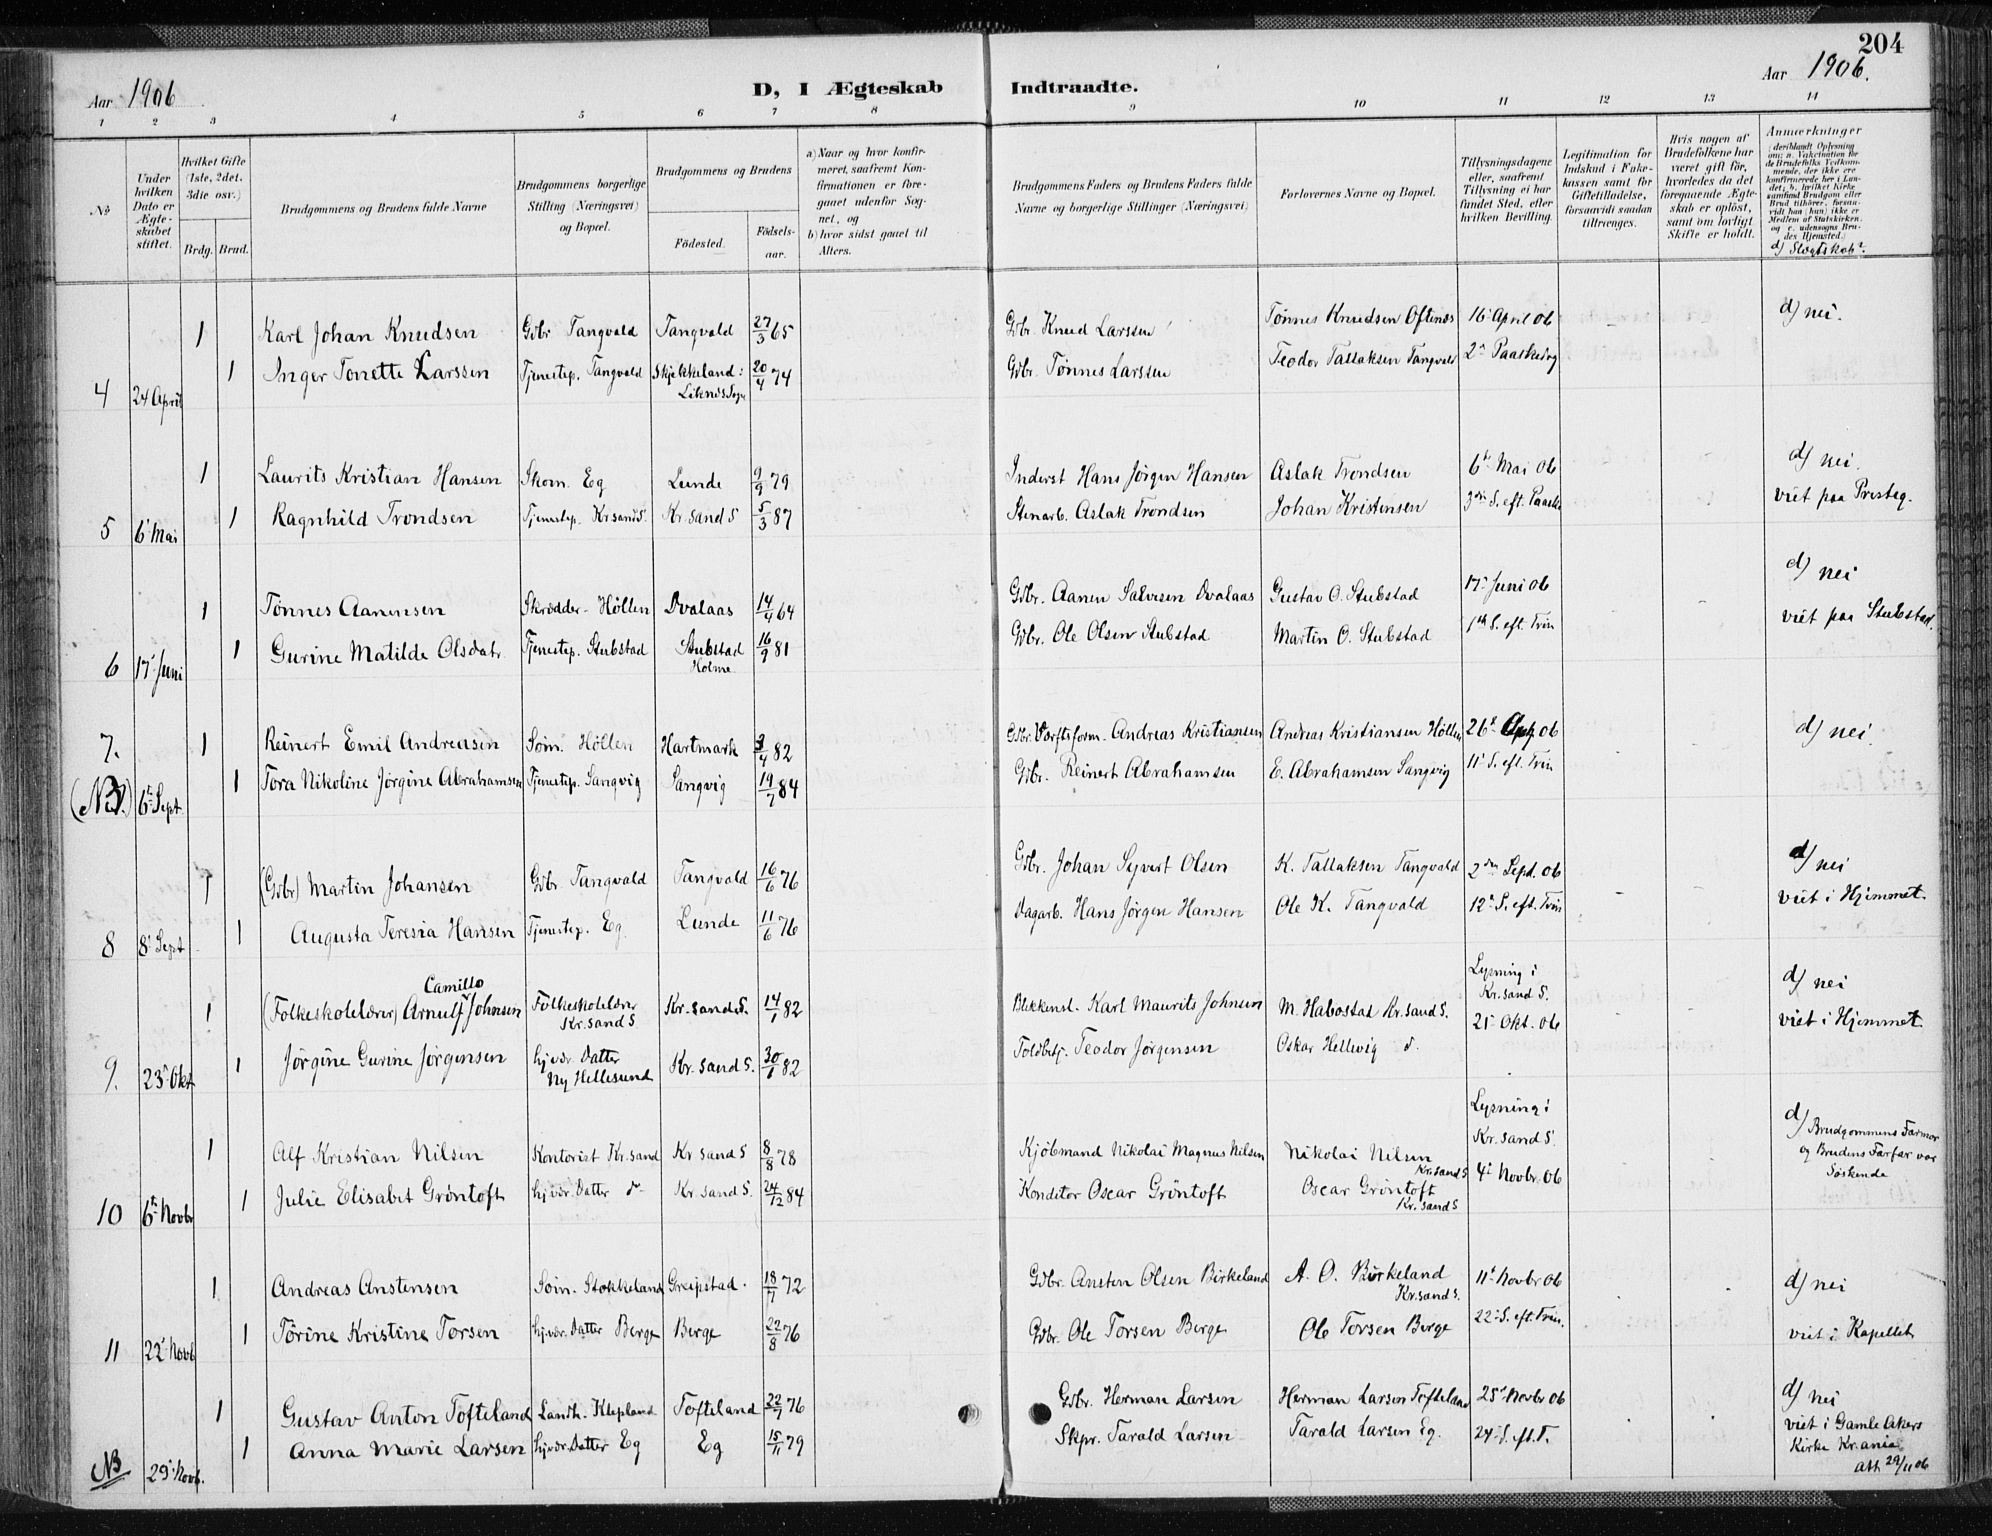 204
Aar 1906
D, I Ægteskab Indtraadte.
Aar 1906.
1 2 3 4 5 6 7 8 9 10 11 12 13 14
No
Under hvilken Dato er Ægteskabet stiftet.
Hvilket Gifte (1ste, 2det, 3die osv.)
Brdg. Brud.
Brudgommens og Brudens fulde Navne
Brudgommens borgerlige Stilling (Næringsvei) og Bopæl.
Brudgommens og Brudens
Fødested.
Fødselsaar.
a) Naar og hvor konfirmeret, saafremt Konfirmationen er foregaaet udenfor Sognet, og
b) hvor sidst gaaet til Alters.
Brudgommens Faders og Brudens Faders fulde Navne og borgerlige Stillinger (Næringsvei)
Forlovernes Navne og Bopæl.
Tillysningsdagene eller, saafremt Tillysning ei har fundet Sted, efter hvilken Bevilling.
Legitimation for Indskud i Enkekassen samt for Giftetilladelse, forsaavidt saadan tiltrænges.
Hvis nogen af Brudefolkene har været gift før, hvorledes da det foregaaende Ægteskab er opløst, samt om lovligt Skifte er holdt.
Anmærkninger
d) Slægtskab?
4 24 April
1 Karl Johan Knudsen Gdbr Tangvald Tangvald 27/3 65 Gdbr. Knud Larssen Tønnes Knudsen Oftenes 16 April 06 d) nei.
1 Inger Tonette Larssen Tjenestep. Tangvald Skjekkeland: Liknes Sogn 20/4 74 Gdbr. Tønnes Larssen Teodor Tallaksen Tangvald 2n Paaskedag
5 6t Mai
1 Laurits Kristian Hansen Skom. Eg Lunde 9/9 79 Inderst Hans Jörgen Hansen Aslak Trondsen 6t Mai 06 d) nei.
1 Ragnhild Trondsen Tjenestep. Kr.sand S. Kr.sand S 5/3 87 Stenarb. Aslak Trondsen Johan Kristensen 3die S. eft. Paaske viet paa Presteg.
6 17 Juni
1 Tønnes Aanensen Skrædder - Höllen Dvalaas 14/4 64 Gdbr. Aanen Salvesen Dvalaas Gustav O. Stubstad 17 Juni 06 d) nei
1 Gurine Matilde Olsdatr Tjenestep. Stubstad Stubstad Holme 16/9 81 Gdbr. Ole Olsen Stubstad Martin O. Stubstad 1ste S. eft. Trin viet paa Stubstad.
7. 6t Sept
1 Reinert Emil Andreasen Söm. Höllen Hartmark 3/4 82 Gdbr. Værftsform. Andreas Kristiansen Andreas Kristiansen Höllen 26t Aug. 06 d) nei.
1 Tora Nikoline Jörgine Abrahamsen Tjenestep. Langvig Langvig 19/7 84 Gdbr. Reinert Abrahamsen E. Abrahamsen Langvig 11t S. eft. Trin
8 8t Sept
1 (Gdbr) Martin Johansen Gdbr. Tangvald Tangvald 16/6 76 Gdbr. Johan Syvert Olsen K. Tallaksen Tangvald 2den Sept. 06 d) nei
1 Augusta Teresia Hansen Tjenestep. Eg. Lunde 11/6 76 Dagarb. Hans Jörgen Hansen Ole K. Tangvald 12t S. eft. Trin viet i Hjemmet.
9. 23 Okt
1 (Folkeskolelærer) Arnulf Camillo Johnsen Folkeskolelærer Kr.sand S Kr.sand S. 14/1 82 Blikkensl. Karl Maurits Johnsen M. Habostad Kr.sand S. Lysning i Kr.sand S. 21 Okt. 06 d) nei
1 Jörgine Gurine Jörgensen hjvdr. Datter Ny Hellesund Kr.sand S. 30/1 82 Toldbetj. Teodor Jörgensen Oskar Hellwig d. viet i Hjemmet
10 6t Novbr
1 Alf Kristian Nilsen Kontorist Kr.sand Kr sand S 8/8 78 Kjöbmand Nikolai Magnus Nilsen Nikolai Nilsen Kr.sand S Lysning i Kr.sand S. 4t Novbr. 06 d) Brudgommens Farmor og Brudens Farfar var Söskende
1 Julie Elisabet Gröntoft hjvdr. Datter d- Kr.sand S. 24/12 84 Konditor Oscar Gröntoft Oscar Gröntoft Kr.sand S
11 22 Novb
1 Andreas Anstensen Söm. Stokkeland Greipstad. 18/7 72 Gdbr. Ansten Olsen Birkeland A. O. Birkeland Kr.sand S. 11t Novbr 06 d) nei
1 Törine Kristine Torsen hjvdr. Datter Berge Berge 22/8 76 Gdbr. Ole Torsen Berge Ole Torsen Berge 22 S. eft. Trin. viet i Kapellet
NB 29 Novb.
1 Gustav Anton Tofteland Landh. Klepland Tofteland 22/7 76 Gdbr. Herman Larsen Herman Larsen Tofteland 25 Novbr 06 d) nei
1 Anna Marie Larsen hjvdr. Datter Eg Eg 15/11 79 Skpr. Tarald Larsen Tarald Larsen Eg. 24 S. eft. T. viet i Gamle Akers Kirke Kr.ania att 29/11 06